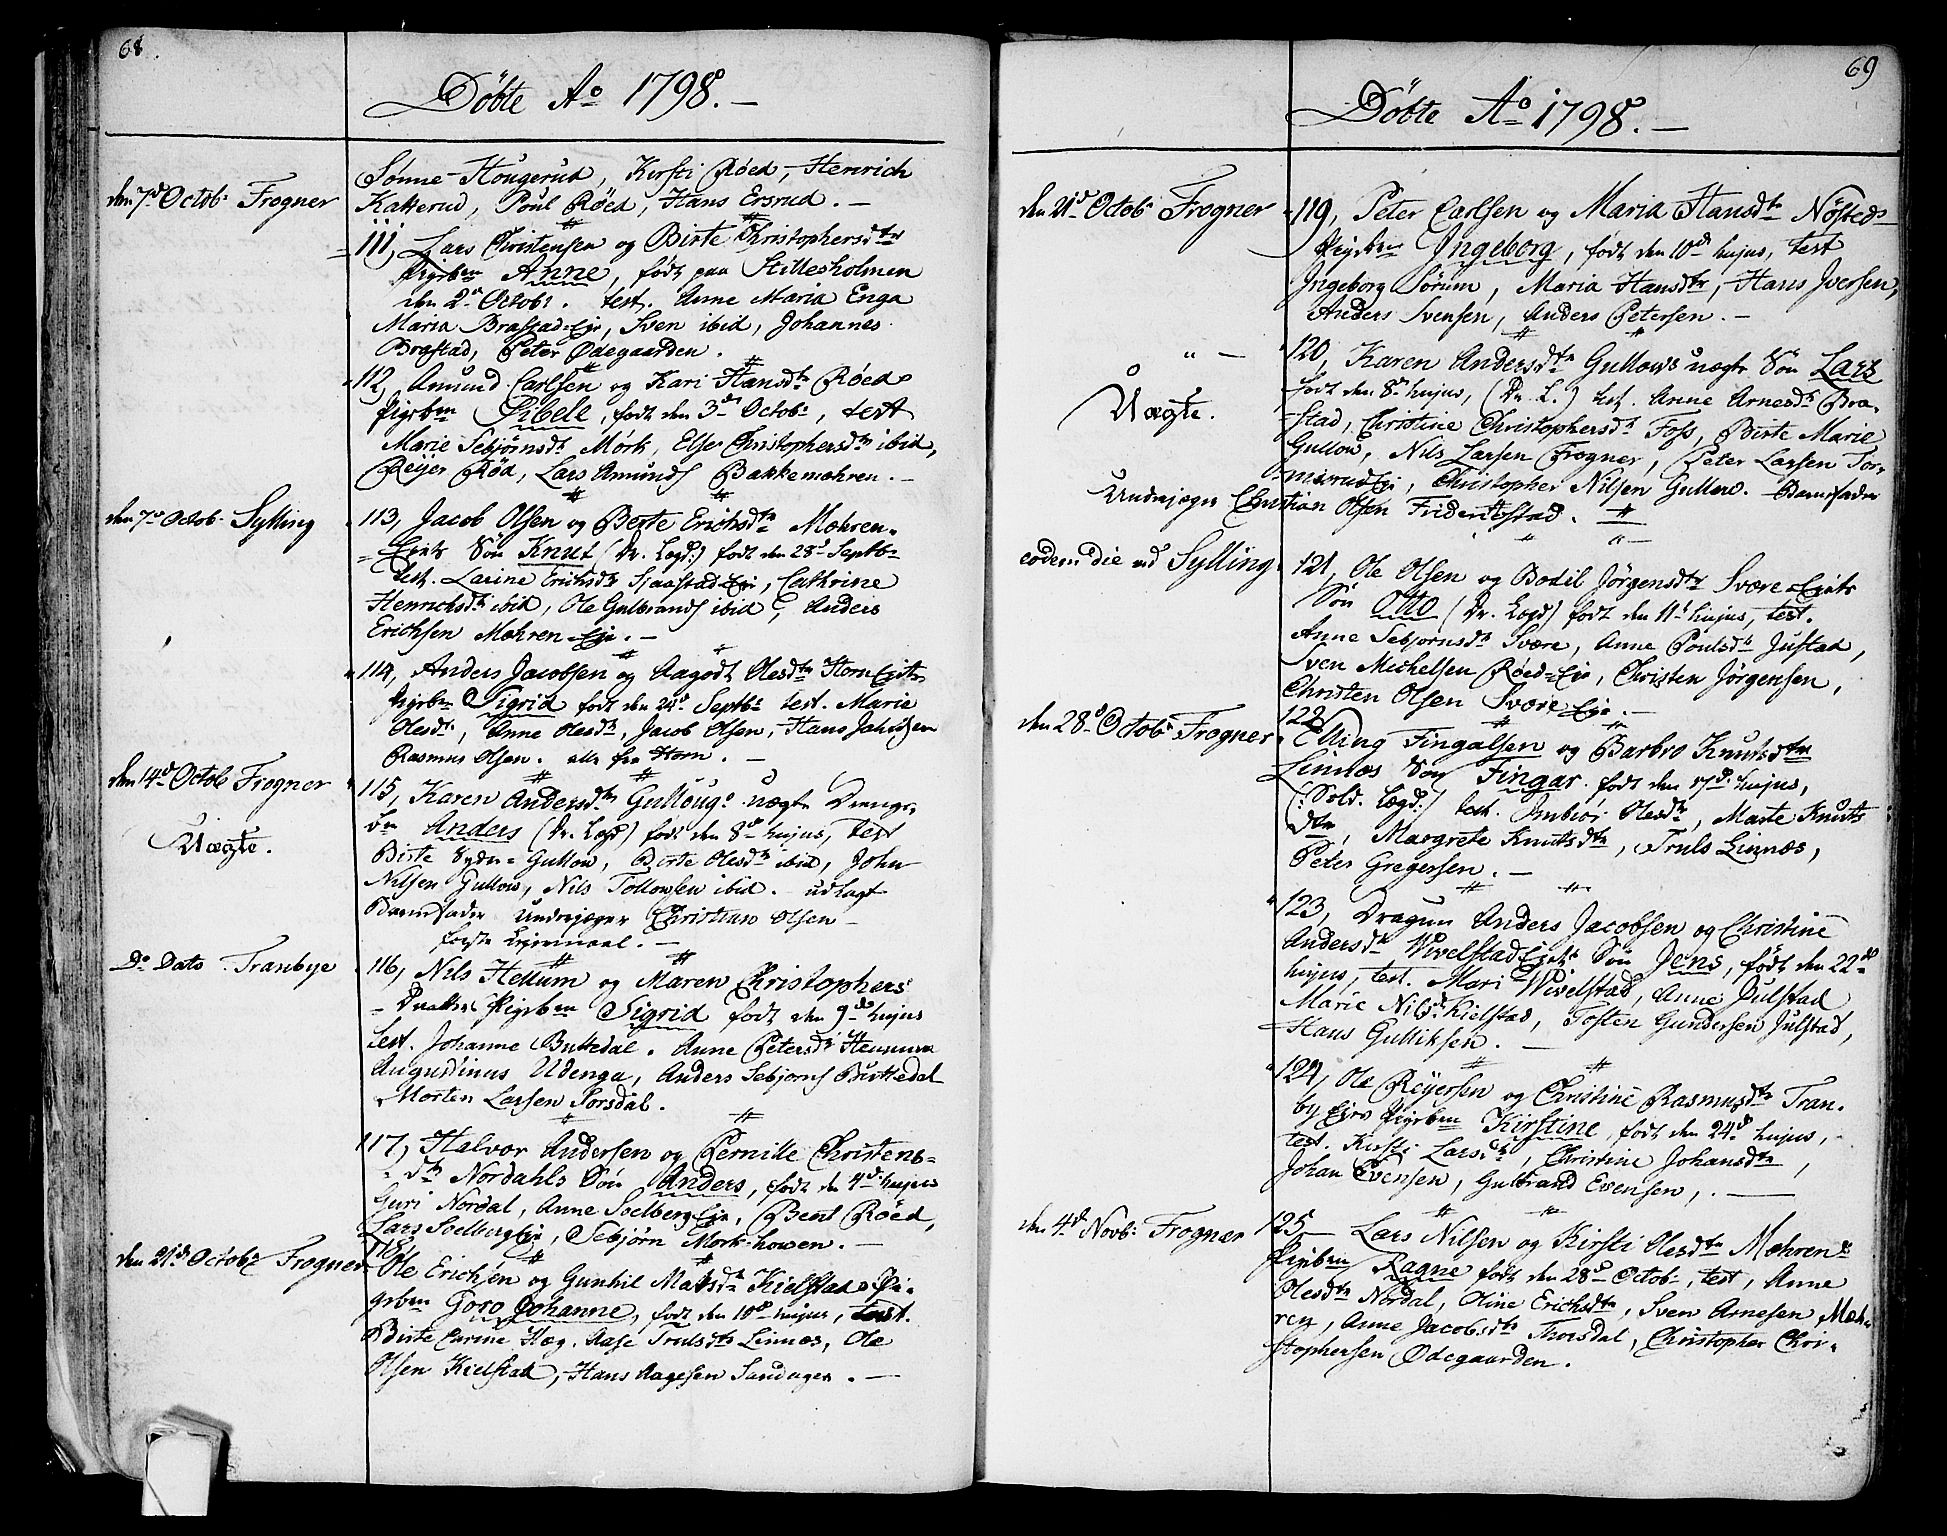 68.
Döbte Ao 1798.—
den 7d Octob: Frogner
Sönne Hougerud, Kirsti Röed, Henrich
Kakkerud, Poul Röed, Hans Ersrud. —
111, Lars Christensen og Birte Christophersdtr
Pigebn Anne, födt paa Stillesholmen
den 2d Octobr. test. Anne Maria Enga
Maria Brastad-Eje, Sven ibid, Johannes
Brastad, Peter Ödegaarden.
112, Amund Carlsen og Kari Hansdtr Röed
Pigebn Sibele, födt den 3d Octob:, test
Marie Sebjörnsdtr Mörk, Else Christophersdtr ibid,
Reijer Röd, Lars Amunds Bakkemæhren. —
den 7d Octob. Sylling
113, Jacob Olsen og Berte Erichsdtr Mæhren-
Eiets Sön Knut (Dr. Legd:) födt den 28d Septbr
test. Larine Erichsdtr Sjaastad-Eje, Cathrine
Henrichsdtr ibid, Ole Gulbrands ibid, Anders
Erichsen Mæhren-Eje. —
114, Anders Jacobsen og Aagodt Olesdtr Horn Eiets
Pigebn Sigrid födt den 24d Septbr test. Marie
Olesdtr, Anne Olesdtr, Jacob Olsen, Hans Jahnsen
Rasmus Olsen. alle fra Horn. —
den 14d Octob Frogner
Uægte.
115, Karen Andersdtr Gullougs uægte Drenge-
bn Anders (Dr. Legd) födt den 8d hujus, test
Birte Gullow, Dorte Olesdtr ibid, John
Nilsen Gullow, Nils Tollowsen ibid. — udlagt
Barnefader Underjæger Christian Olsen —
förste Leiermaal. —
Do Dato Tranbye
116, Nils Hellum og Maren Christophers
Pigebn Sigrid födt den 9d hujus
test. Johanne Buttedal. Anne Petersdtr
Augustinus Udenga, Anders Sebjorns Buttedal
Morten Larsen Porsdal.
117, Halvor Andersen og Pernille Christens-
dtr Nordahls Sön Anders, födt den 4d hujus
Guri Nordal, Anne Soelberg Eje, Bent Röed,
Lars Soelberg Eje, Sebjörn Mork-howen. —
den 21d Octobr Frogner
118, Ole Erichsen og Gunhil Matsdtr Kielstad Pi-
gebn Goro Johanne, födt den 10d hujus, test.
Birte Carine Hæg, Aase Trulsdtr Linnæs, Ole
Olsen Kielstad, Hans Aagesen Sandager. —
69
Döbte Ao 1798. —
den 21d Octob: Frogner
119, Peter Carlsen og Maria Hansdtr Nösteds
Pigebn Ingeborg, födt den 10d hujus, test
Ingeborg Sörum, Maria Hansdtr, Hans Iversen,
Anders Svensen, Anders Petersen. —
" —
Uægte.
120, Karen Andersdtr Gullows uægte Sön Lars
födt den 8d hujus, (Dr. L.) test. Anne Arnesdtr Bra-
stad, Christine Christophersdtr Foss, Birte Marie
Gullow, Nils Larsen Frogner, Peter Larsen Tor-
misrud Eje, Christopher Nilsen Gullow. — Barnefader
Underjæger Christian Olsen Friderichstad.
eodem die ved Sylling
121, Ole Olsen og Bodil Jörgensdtr Svære-Eiets
Sön Otto (Dr. Legd) födt den 11d hujus, test.
Anne Sebjornsdtr Svære, Anne Poulsdtr Justad,
Sven Michelsen Röed-Eje, Christen Jörgensen,
Christen Olsen Svære Eje. —
den 28d Octob: Frogner
122, Elling Fingalsen og Barbro Knutsdtr
Linnæs Sön Fingar födt den 17d hujus,
(: Sold. Lægd:) test. Olesdtr, Marte Knuts
dtr, Margrete Knutsdtr, Truls Linnæs,
Peter Gregersen. —
123, Dragun Anders Jacobsen og Christine
Andersdtr Wivelstad Eiets Sön Jens, födt den 22d
hujus, test. Mari Wivelstad, Anne Julstad
Marie Nilsd Kielstad, Tosten Gundersen Julstad,
Hans Gulliksen. —
124, Ole Reijersen og Christine Rasmusdtr Tran-
by Eies Pigebn Kirstine, födt den 24d hujus,
test. Kirsti Larsdtr, Christine Johansdtr,
Johan Evensen, Gulbrand Evensen, . —
den 4d Novb: Frogner
125, Lars Nilsen og Kirsti Olesdtr Mæhrens
Pigebn Ragne födt den 28d Octob:, test, Anne
Olesdtr Nordal, Oline Erichsdtr, Sven Arnesen Mæh-
ren, Anne Jacobsdtr Thorsdal, Christopher Chri-
stophersen Ödegaarden.